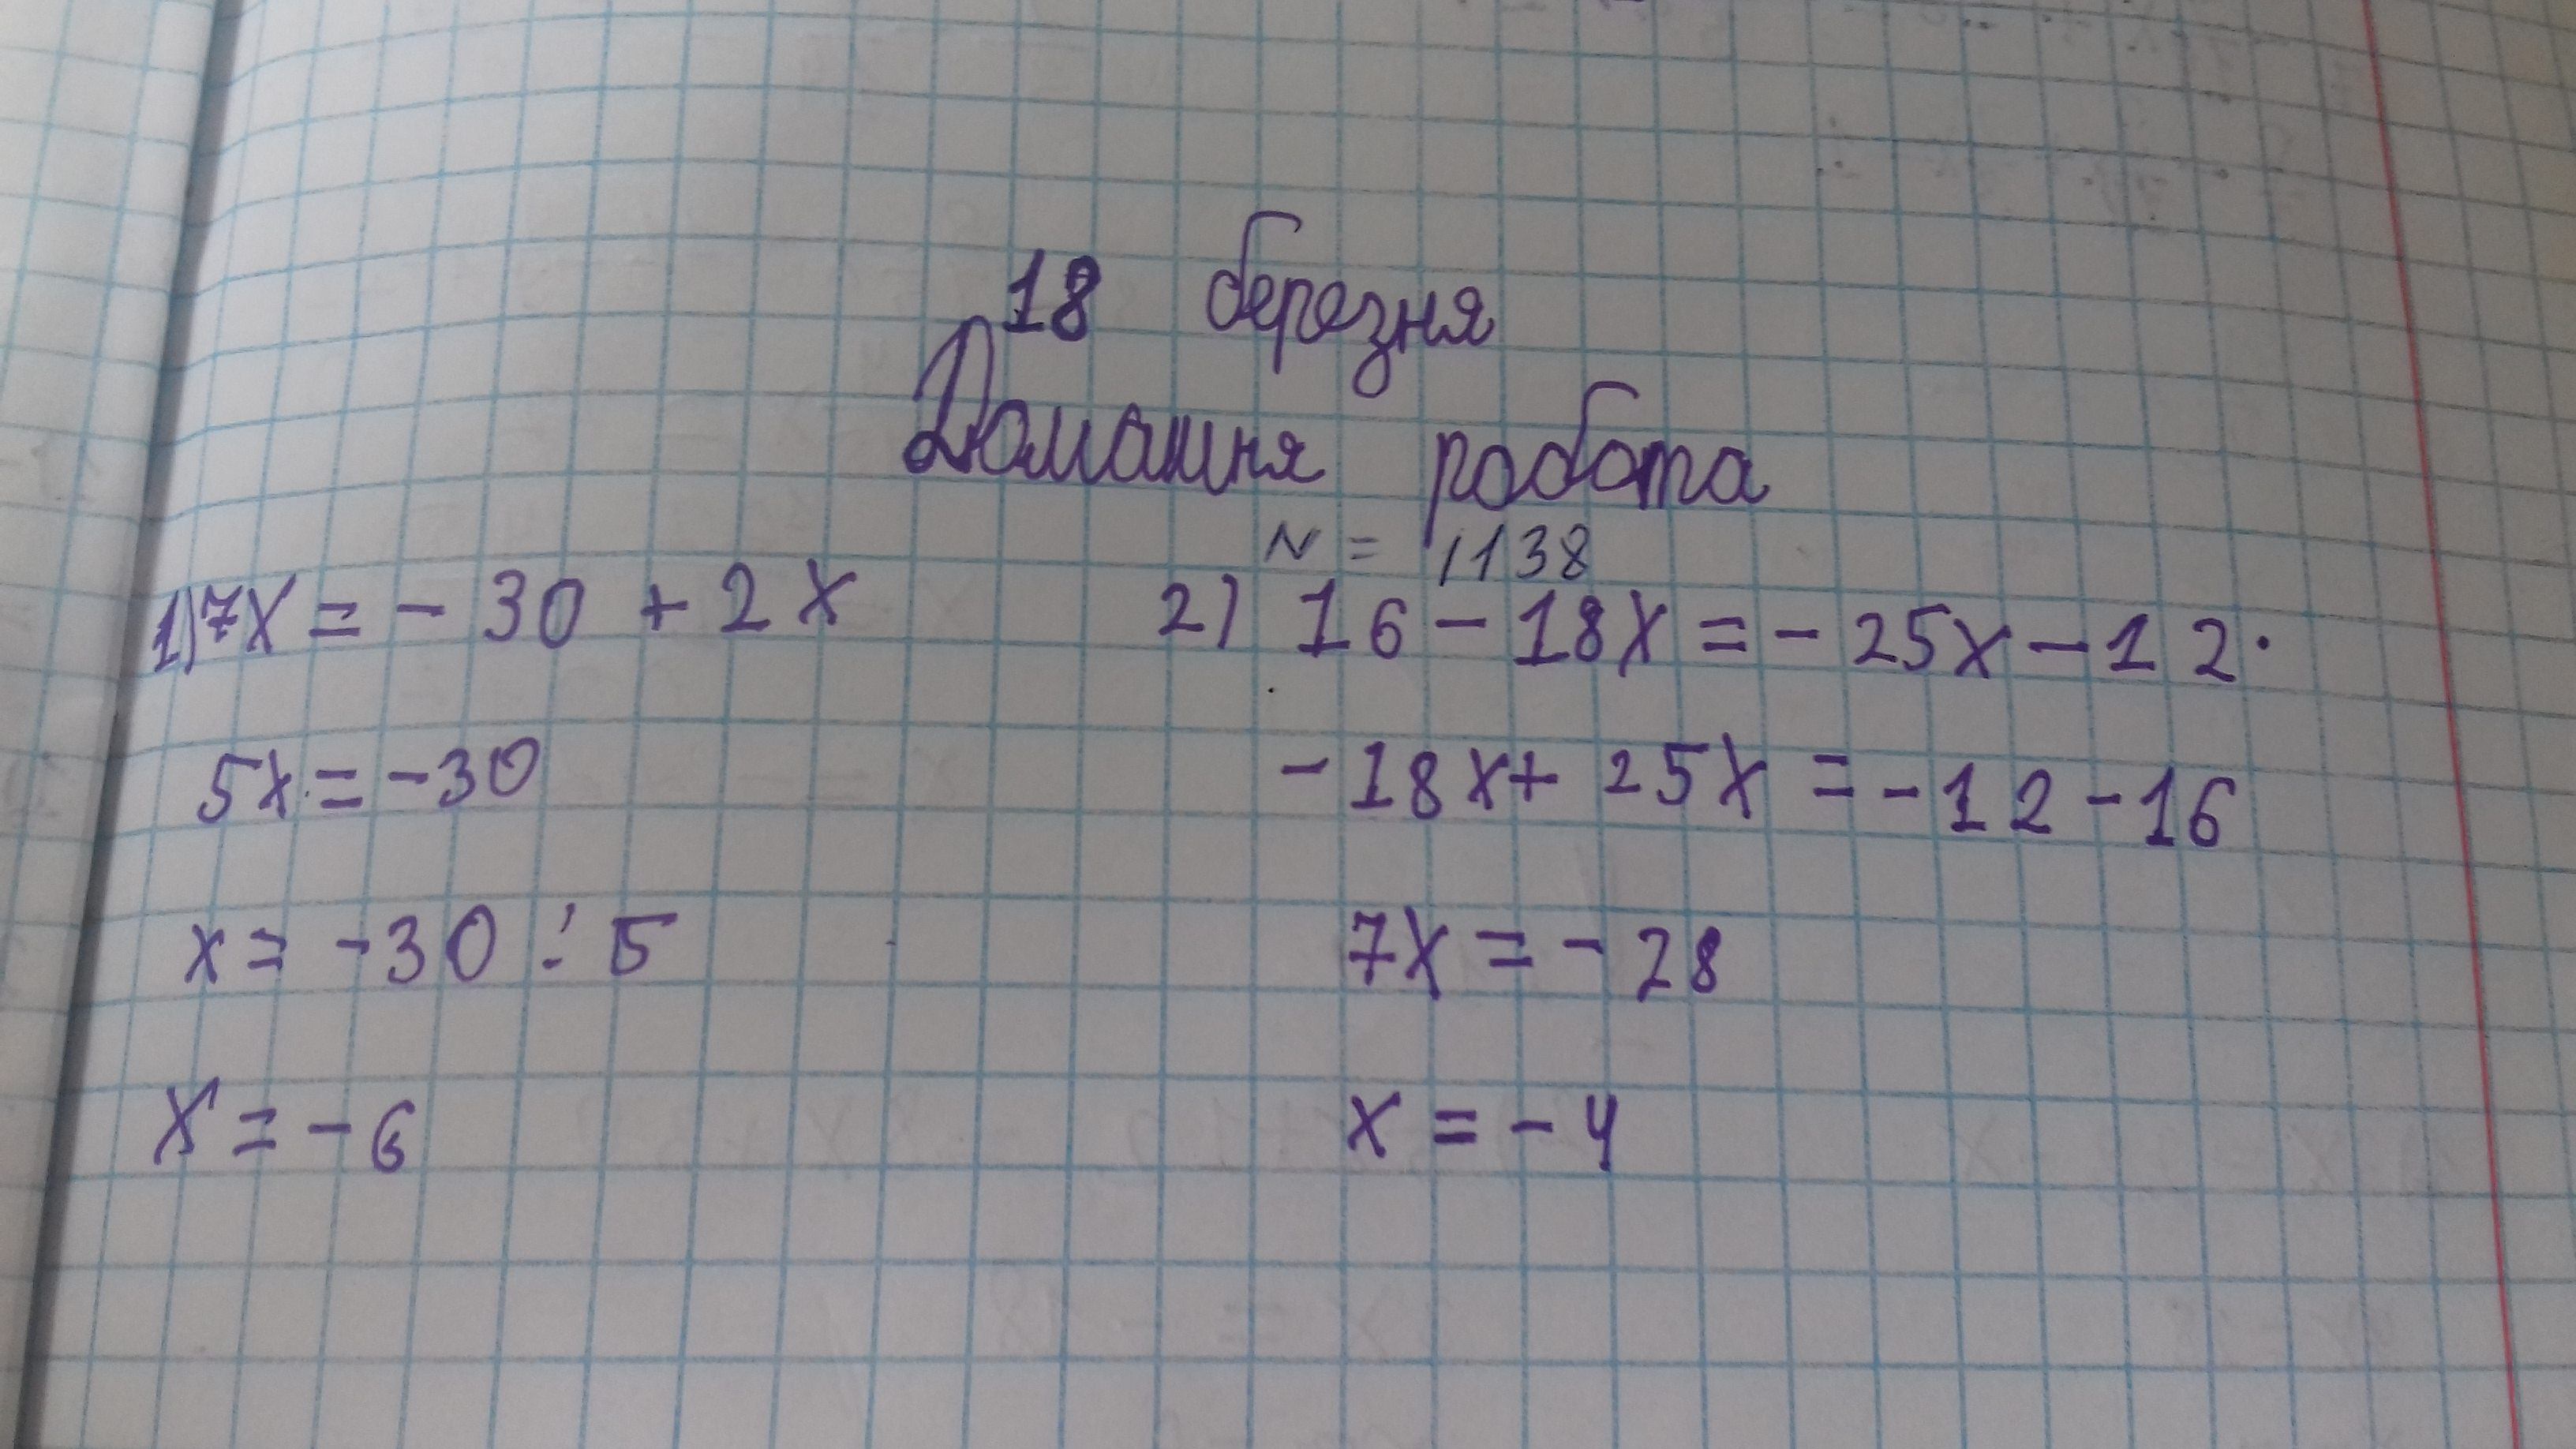 18 березня
Домашня робота
N = 1138
1) 7x = - 30 + 2x
5x = -30
x = -30 : 5
x = -6
2) 16 - 18x = - 25x - 12.
- 18x + 25x = - 12 - 16
7x = - 28
x = - 4